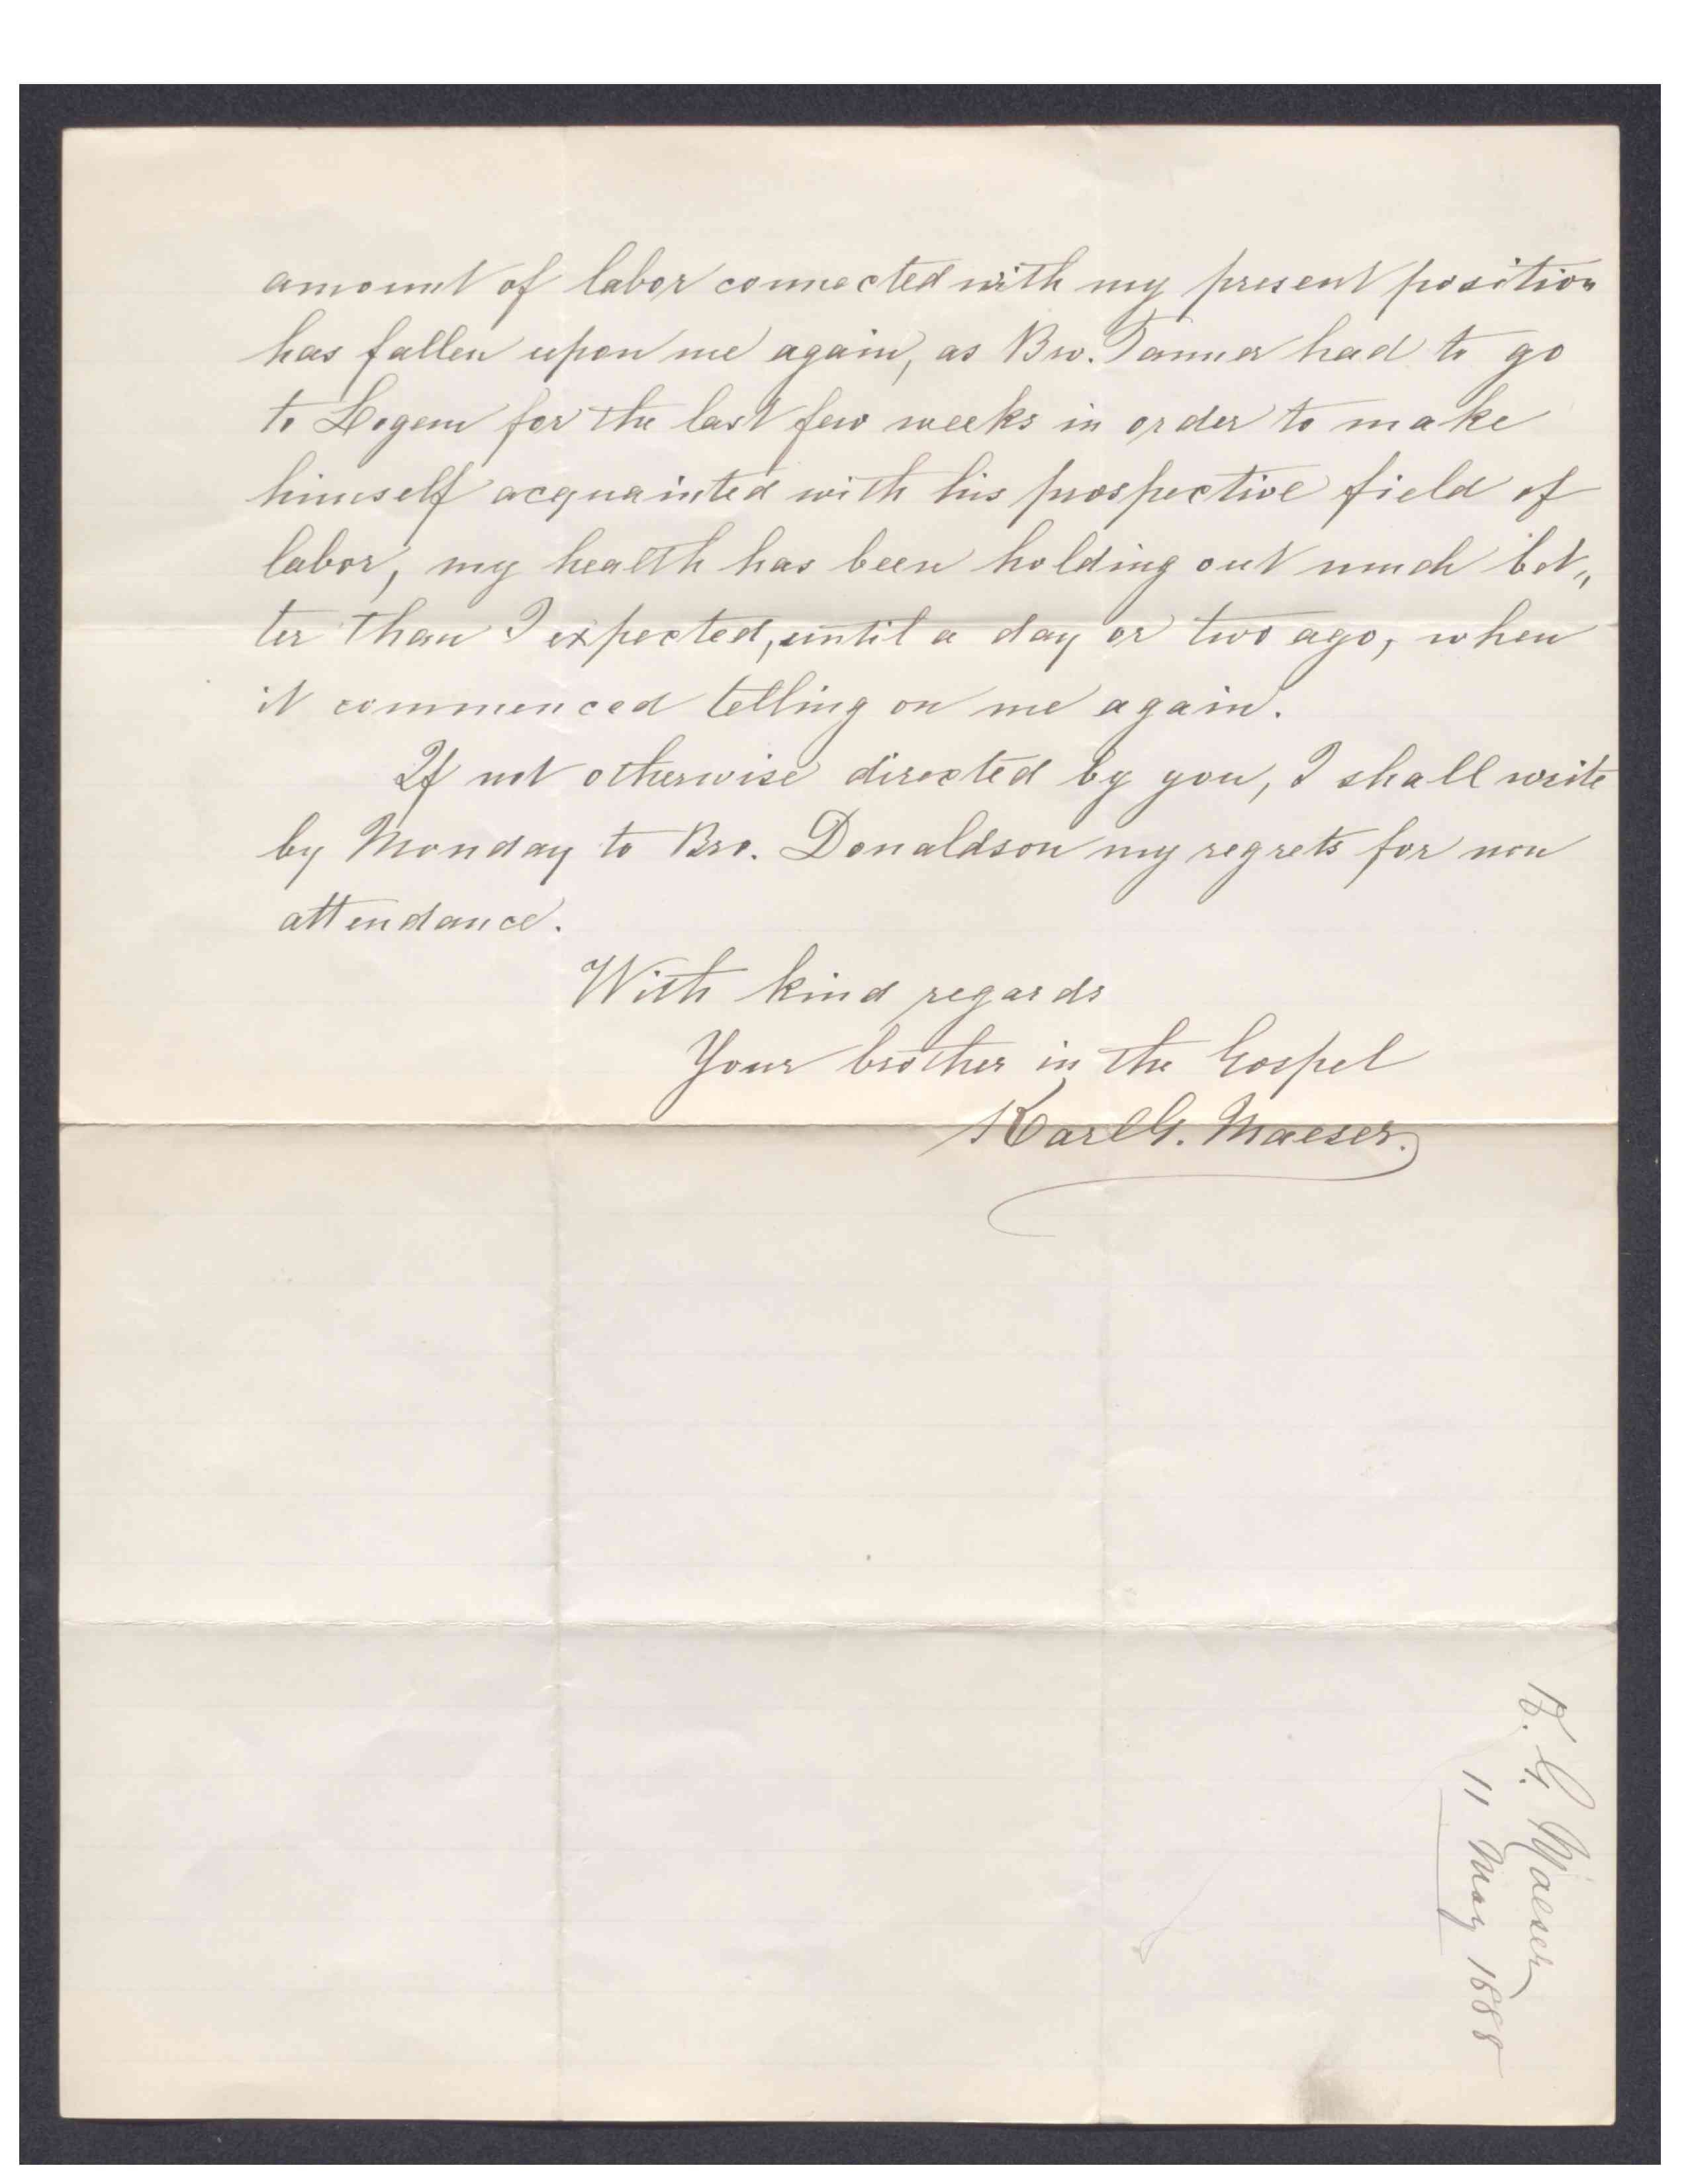 amount of labor connected with my present position
has fallen upon me again, as Bro. Tanner had to go
to Logan for the last few weeks in order to make
himself acquainted with his prospective field of
labor, my health has been holding out much bet„
ter than I expected, until a day or two ago, when
it commenced telling on me again.
If not otherwise directed by you, I shall write
by Monday to Bro. Donaldson my regrets for non
attendance.
With kind regards
Your brother in the Gospel
Karl G. Maeser.
K. G. Maeser
11 May 1888